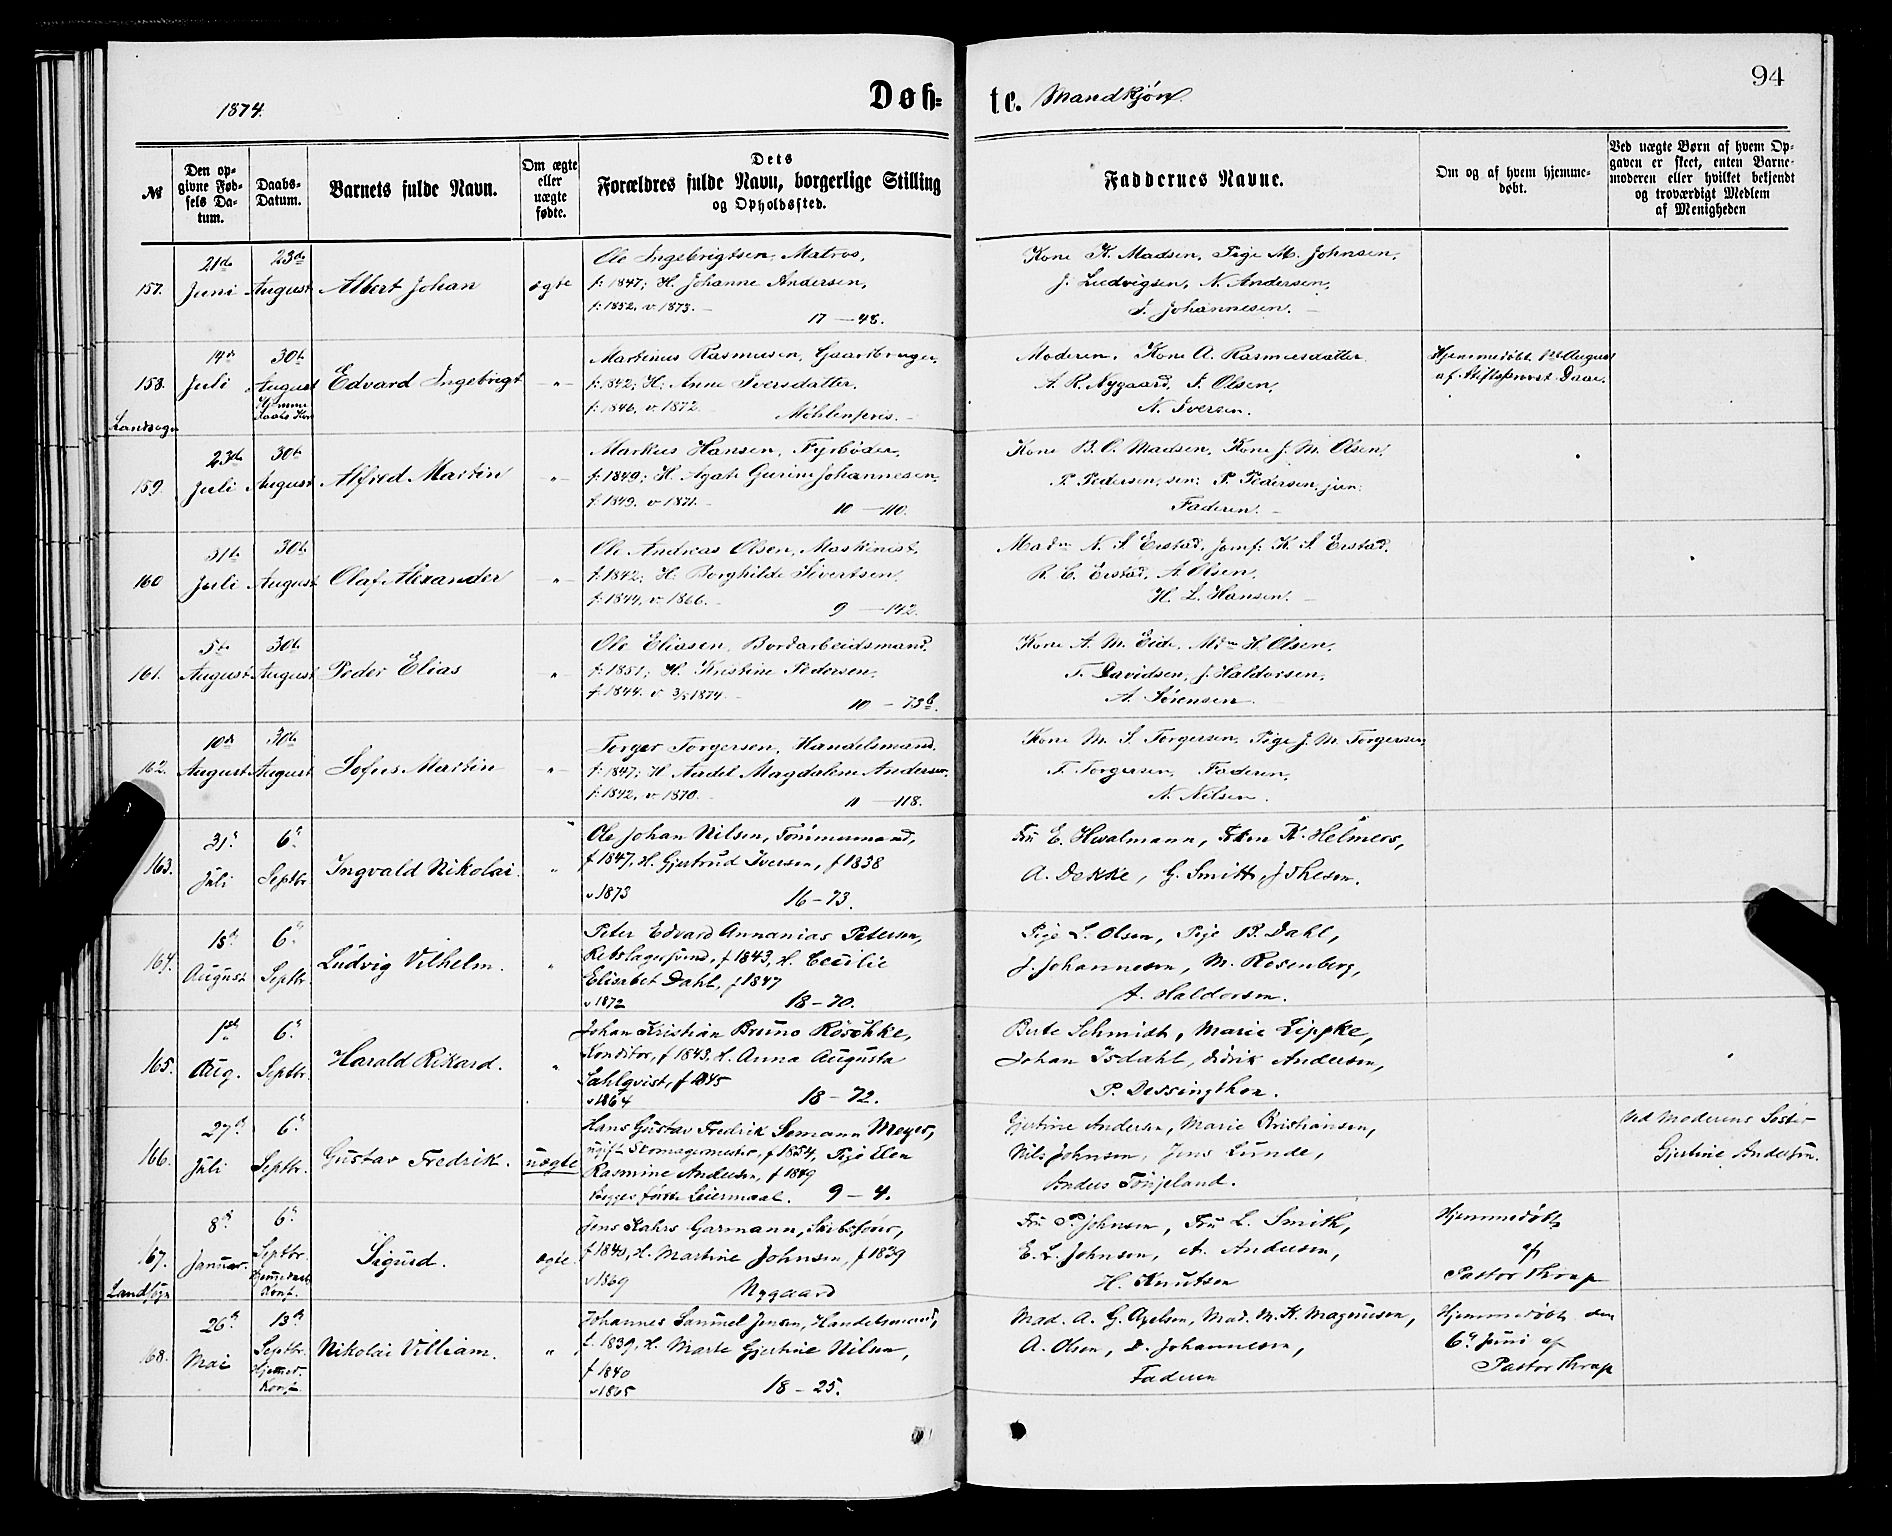 94
1874.
Døb-
te. Mandkjøn.
№
Den op-
givne Fød-
sels Da-
tum.
Daabs-
Datum.
Barnets fulde Navn.
Om ægte
eller
uægte
fødte.
Dets
Forældres fulde Navn, borgerlige Stilling
og Opholdssted.
Faddernes Navne.
Om og af hvem hjemme-
døbt.
Ved uægte Børn af hvem Op-
gaven er skeet, enten Barne-
moderen eller hvilket bekjendt
og troværdigt Medlem
af Menigheden
157.
21de
Juni
23de
August
Albert Johan
ægte
Ole Ingebrigtsen, Matros,
f: 1847; H. Johanne Andersen,
f: 1852. v. 1873. –
17 – 48.
Kone K. Madsen, Pige M. Johnsen,
J. Ludvigsen, N. Andersen,
J. Johannesen. –
158.
Landsogn
14de
Juli
30te
August
Edvard Ingebrigt
–"–
Martinus Rasmusen, Gaardbruger,
f: 1842; H: Anne Iversdatter,
f: 1846. v. 1872.
Møhlenpris. –
Moderen, Kone A. Rasmusdatter
A. R. Nygaard, J. Olsen,
N. Iversen.
Hjemmedøbt 1ste August
af Stiftsprovst Daae.
159.
23de
Juli
30te
August
Alfred Martin
"–
Markus Hansen, Fyrbøder,
f: 1849; H. Agate Gurine Johannesen,
f. 1849. v. 1871. –
10 – 110.
Kone B. O. Madsen, Kone J. M. Olsen,
P. Pedersen, sen: P. Pedersen, jun:
Faderen. –
160
31te
Juli
30te
August
Olaf Alexander
"–
Ole Andreas Olsen, Maskinist,
f: 1842; H: Borghilde Sivertsen,
f: 1844. v. 1866. –
9 – 142.
Madm N. S. Erstad, Jomf: K. S. Erstad,
R. C. Erstad, A. Olsen,
H. L. Hansen. –
161.
5te
August
30te
August
Peder Elias
"–
Ole Eliasen, Bordarbeidsmand,
f: 1851; H. Kristine Pedersen,
f. 1844. v 3/5 1874. –
10 – 73b.
Kone A. M. Eide, Mdm H. Olsen,
T. Davidsen, J. Haldorsen,
A. Sørensen
162.
10de
August
30te
August
Sofus Martin
"–
Torger Torgersen, Handelsmand.
f: 1847; H. Aadel Magdalene Andersen,
f: 1842, v. 1870. –
11 – 118.
Kone M. S. Torgersen, Pige J. M. Torgersen,
T. Torgersen, Faderen,
N. Nilsen.
163.
31te
Juli
6te
Septbr
Ingvald Nikolai.
"
Ole Johan Nilsen, Tømmermand,
f 1847, H. Gjertrud Iversen, f 1838
v 1873
16 – 73.
Fru E. Hvalmann, Frkn K. Helmers,
A. Dekke, G. Smitt, J Ihlesen.
164.
15de
August
6te
Septbr.
Ludvig Vilhelm.
"
Peter Edvard Annanias Petersen,
Rebslagersvend, f 1843, H. Cecilie
Elisabet Dahl, f 1847
v 1872
18 – 70.
Pige L. Olsen, Pige B. Dahl,
J. Johannesen, M. Rosenberg,
A. Haldorsen.
165.
1ste
Aug.
6te
Septbr.
Harald Rikard.
"
Johan Kristian Bruno Röschke,
Konditor, f 1843. H. Anna Augusta
Sahlqvist, f 1845
v 1864
18 – 72.
Berte Schmidt, Marie Lippke,
Johan Isdahl, Didrik Andersen,
P. Dessingthon.
166.
27de
Juli
6te
Septbr.
Gustav Fredrik.
uægte
Hans Gustav Fredrik Semann Meyer,
ugift Skomagermester, f 1854, Pige Elen
Rasmine Andersen, f 1849
Begges første Leiermaal.
9 – 4.
Gjertine Andersen, Marie Kristiansen,
Nils Johnsen, Jens Lunde,
Anders Tönjeland.
Ved Moderens Søster
Gjertine Andersen.
167.
Landsogn
8de
Januar.
6te
Septbr.
Hjemmedaab
Konf.
Sigurd.
ægte.
Jens Kahrs Garmann, Skibsfører,
f 1840, H. Martine Johnsen, f 1839
v 1869
Nygaard
Fru P. Johnsen, Fru L. Smith,
E. L. Johnsen, A. Andersen,
H. Knutsen
Hjemmedøbt
af
Pastor Thrap
168.
26de
Mai
13de
Septbr.
Hjemmed.
Konf.
Nikolai Villiam.
"
Johannes Samuel Jensen, Handelsmand,
f. 1839, H. Marte Gjertine Nilsen,
f 1840
v 1865
18 – 25.
Mad. A. G. Axelsen, Mad. M. K. Magnusen,
A. Olsen, D. Johannesen,
Faderen
Hjemmedøbt den
6te Juni af
Pastor Thrap